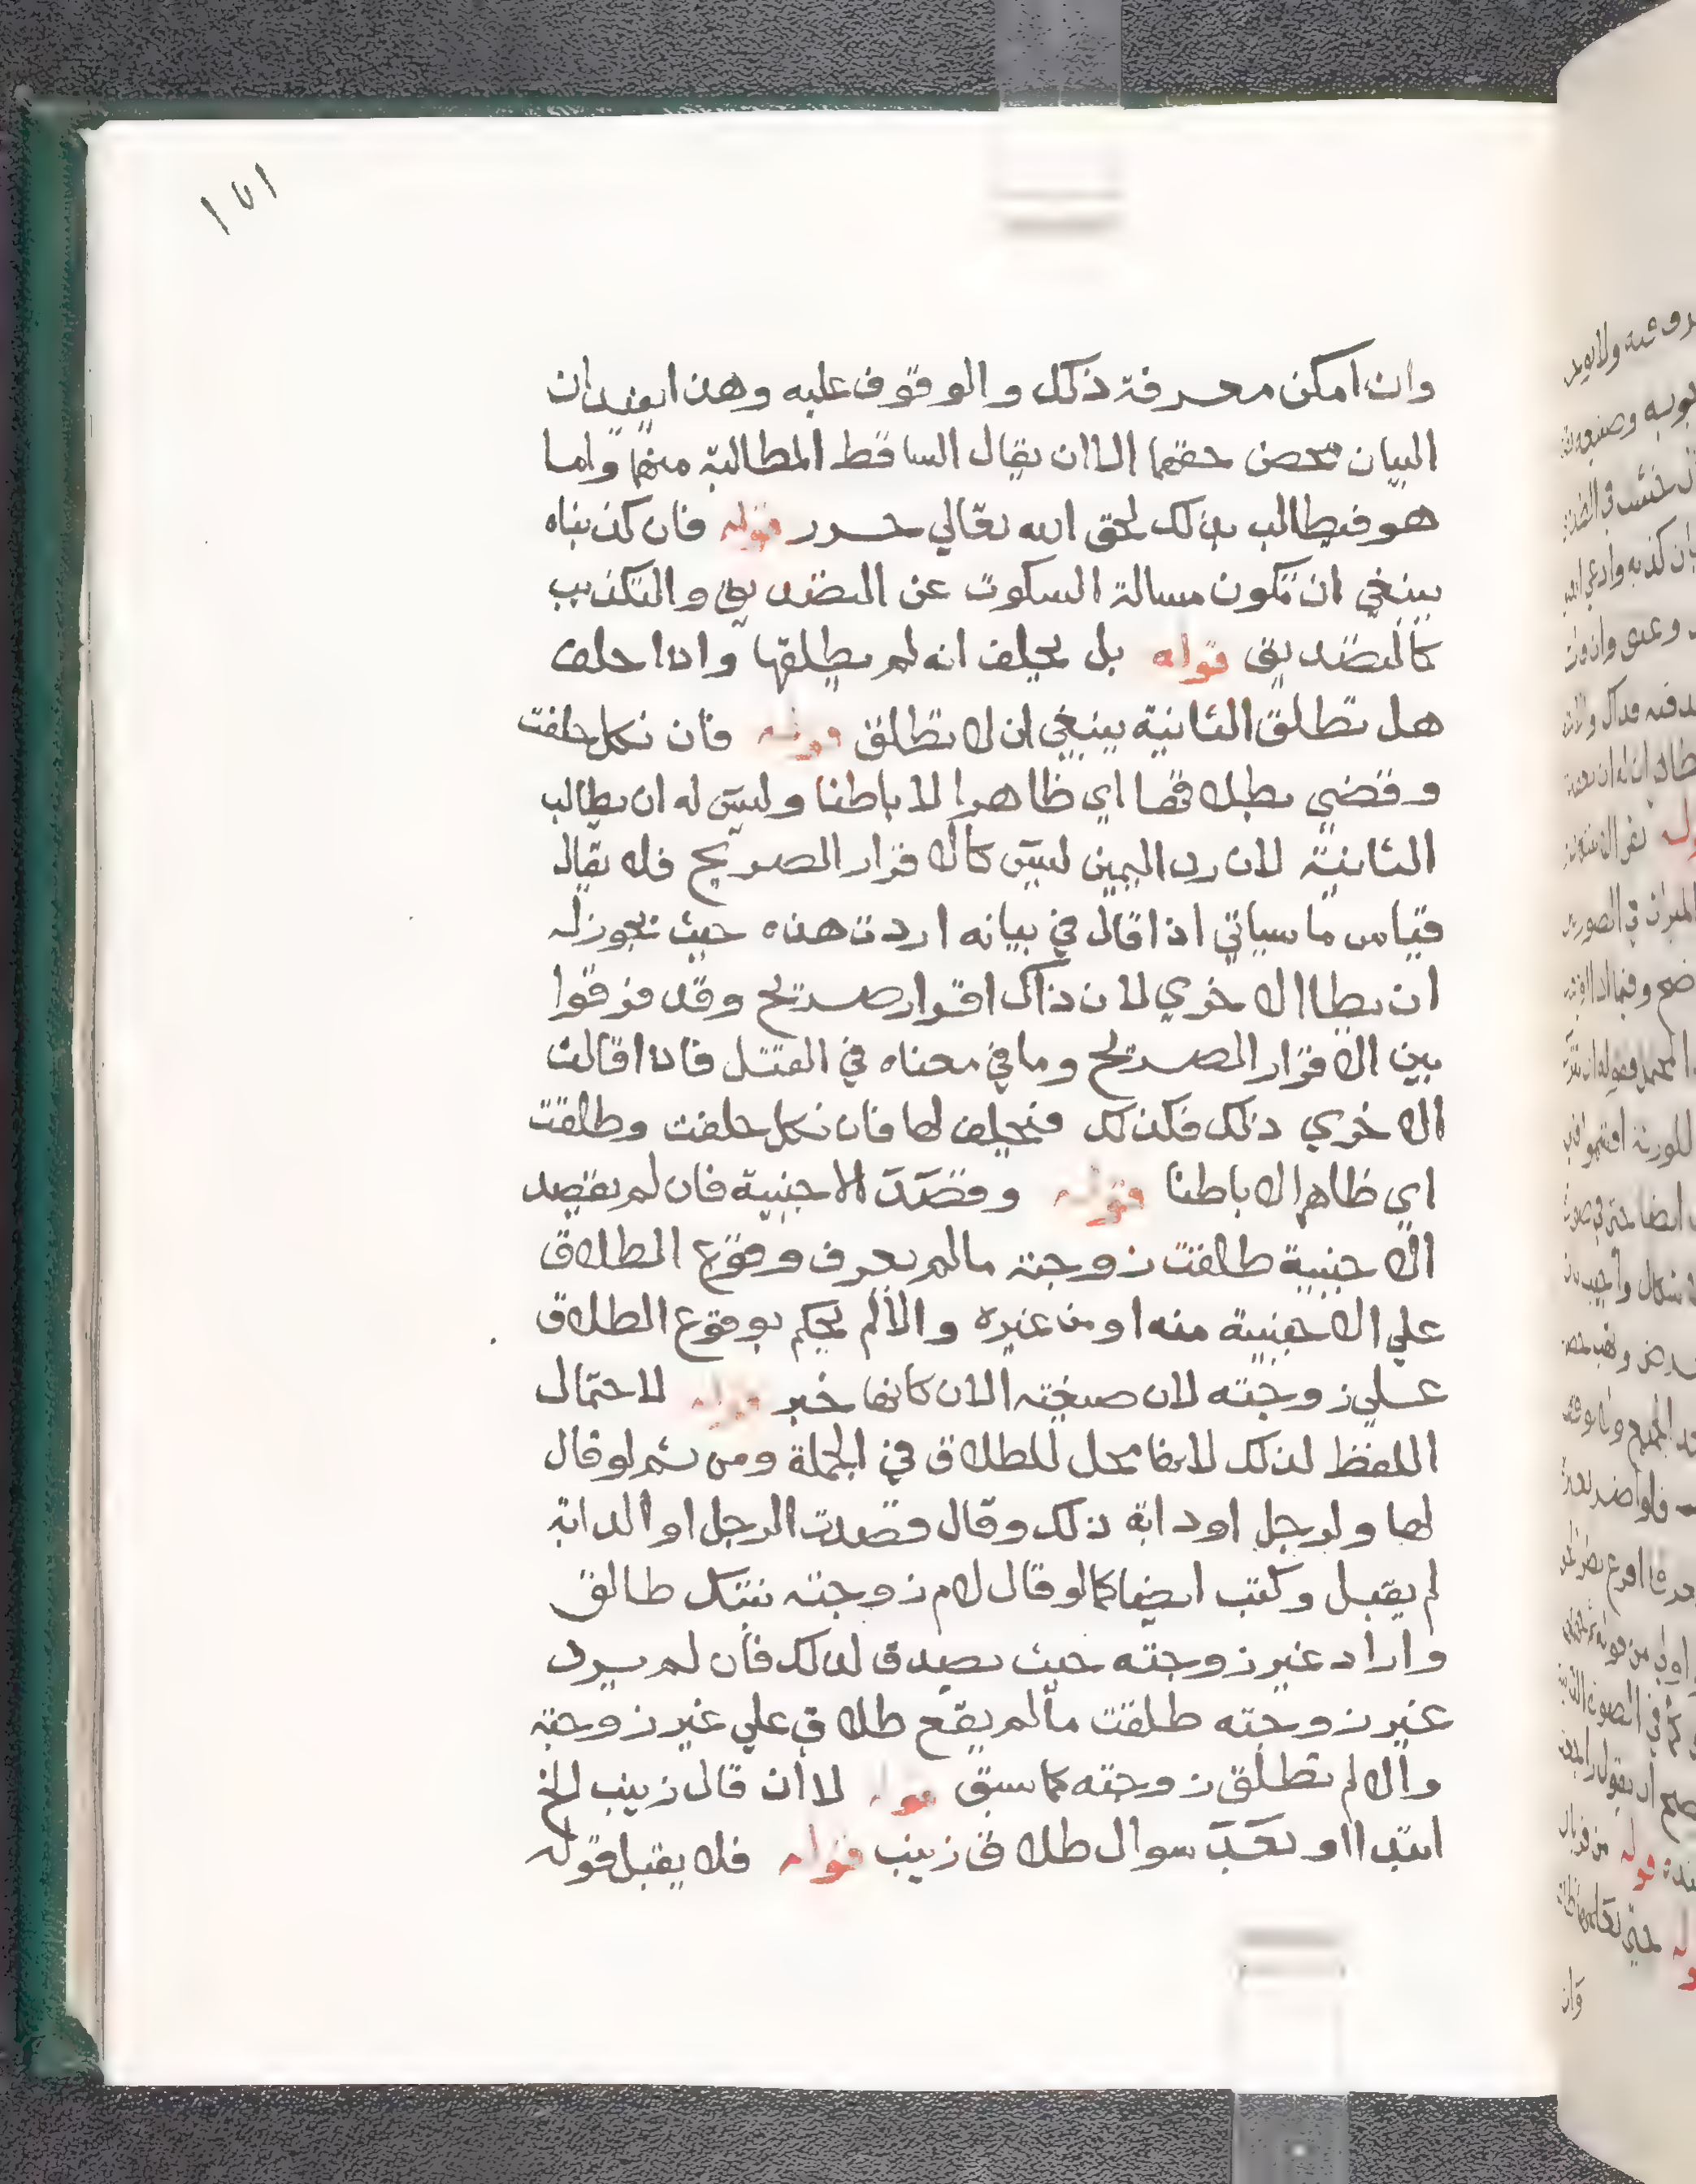 ١٥١
وان امكن معرفة ذلك والوقوف عليه وهذا يفيد ان
البيان محض حقهما الا ان يقال الساقط المطالبة منهما واما
هو فيطالب بذلك لحق الله تعالي حرر قوله فان كذبناه
ينبغي ان تكون مسالة السكوت عن التصديق والتكذيب
كالتصديق قوله بل يحلف انه لم يطلقها واذا حلف
هل تطلق الثانية ينبغي ان لا تطلق قوله فان نكل حلفت
وقضي بطلاقها اي ظاهرا لا باطنا وليس له ان يطالب
الثانية لان رد اليمين ليس كالاقرار الصريح فلا يقال
قياس ما سياتي اذا قال في بيانه اردت هذه حيث تجوز له
ان يطا الاخري لان ذاك اقرار صريح وقد فرقوا
بين الاقرار الصريح وما في معناه في القتل فاذا قالت
الاخري ذلك فكذلك فيحلف لها فان نكل حلفت وطلقت
اي ظاهرا لا باطنا قوله وقصد الاجنبية فان لم يقصد
الاجنبية طلقت زوجته مالم يعرف وقوع الطلاق
علي الاجنبية منه او من غيره والا لم يحكم بوقوع الطلاق
علي زوجته لان صيغته الان كانها خبر قوله لاحتمال
اللفظ لذلك لانها محل للطلاق في الجملة ومن ثم لو قال
لها ولرجل او دابة ذلك وقال قصدت الرجل او الدابة
لم يقبل وكتب ايضا كما لو قال لام زوجته بنتك طالق
واراد غير زوجته حيث يصدق لذلك فان لم يرد
غير زوجته طلقت مالم يقع طلاق علي غير زوجته
والا لم تطلق زوجته كما سبق قوله لا ان قال زينب الخ
ابتدا او بعد سوال طلاق زينب قوله فلا يقبل قوله